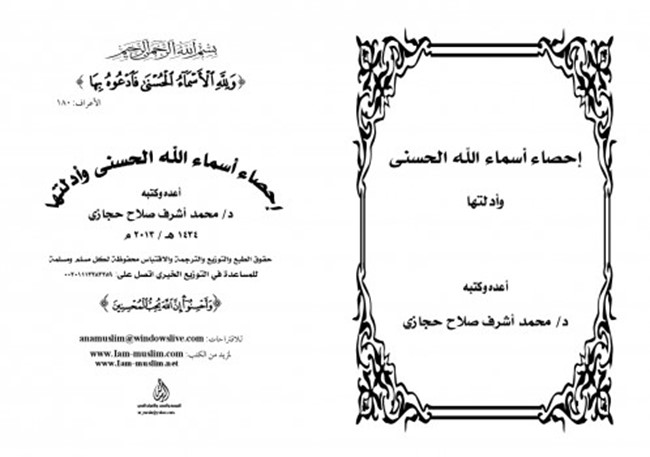 إحصاء أسماء الله الحسنى
وأدلتها
أعده وكتبه
د/ محمد أشرف صلاح حجازى
بسم الله الرحمن الرحيم
﴿ وَلِلَّهِ الْأَسْمَاءُ الْحُسْنَىٰ فَادْعُوهُ بِهَا ﴾
الأعراف: ١٨٠
إحصاء أسماء الله الحسنى وأدلتها
أعده وكتبه
د/ محمد أشرف صلاح حجازى
١٤٣٤ هـ / ٢٠١٣ م
حقوق الطبع والتوزيع والترجمة والاقتباس محفوظة لكل مسلم ومسلمة
للمساعدة في التوزيع الخيري اتصل على:
﴿ وَأَحْسِنُوا إِنَّ اللَّهَ يُحِبُّ الْمُحْسِنِينَ ﴾
للاقتراحات: anamuslim@windowslive.com
لمزيد من الكتب: www.Iam-muslim.com
www.Iam-muslim.net